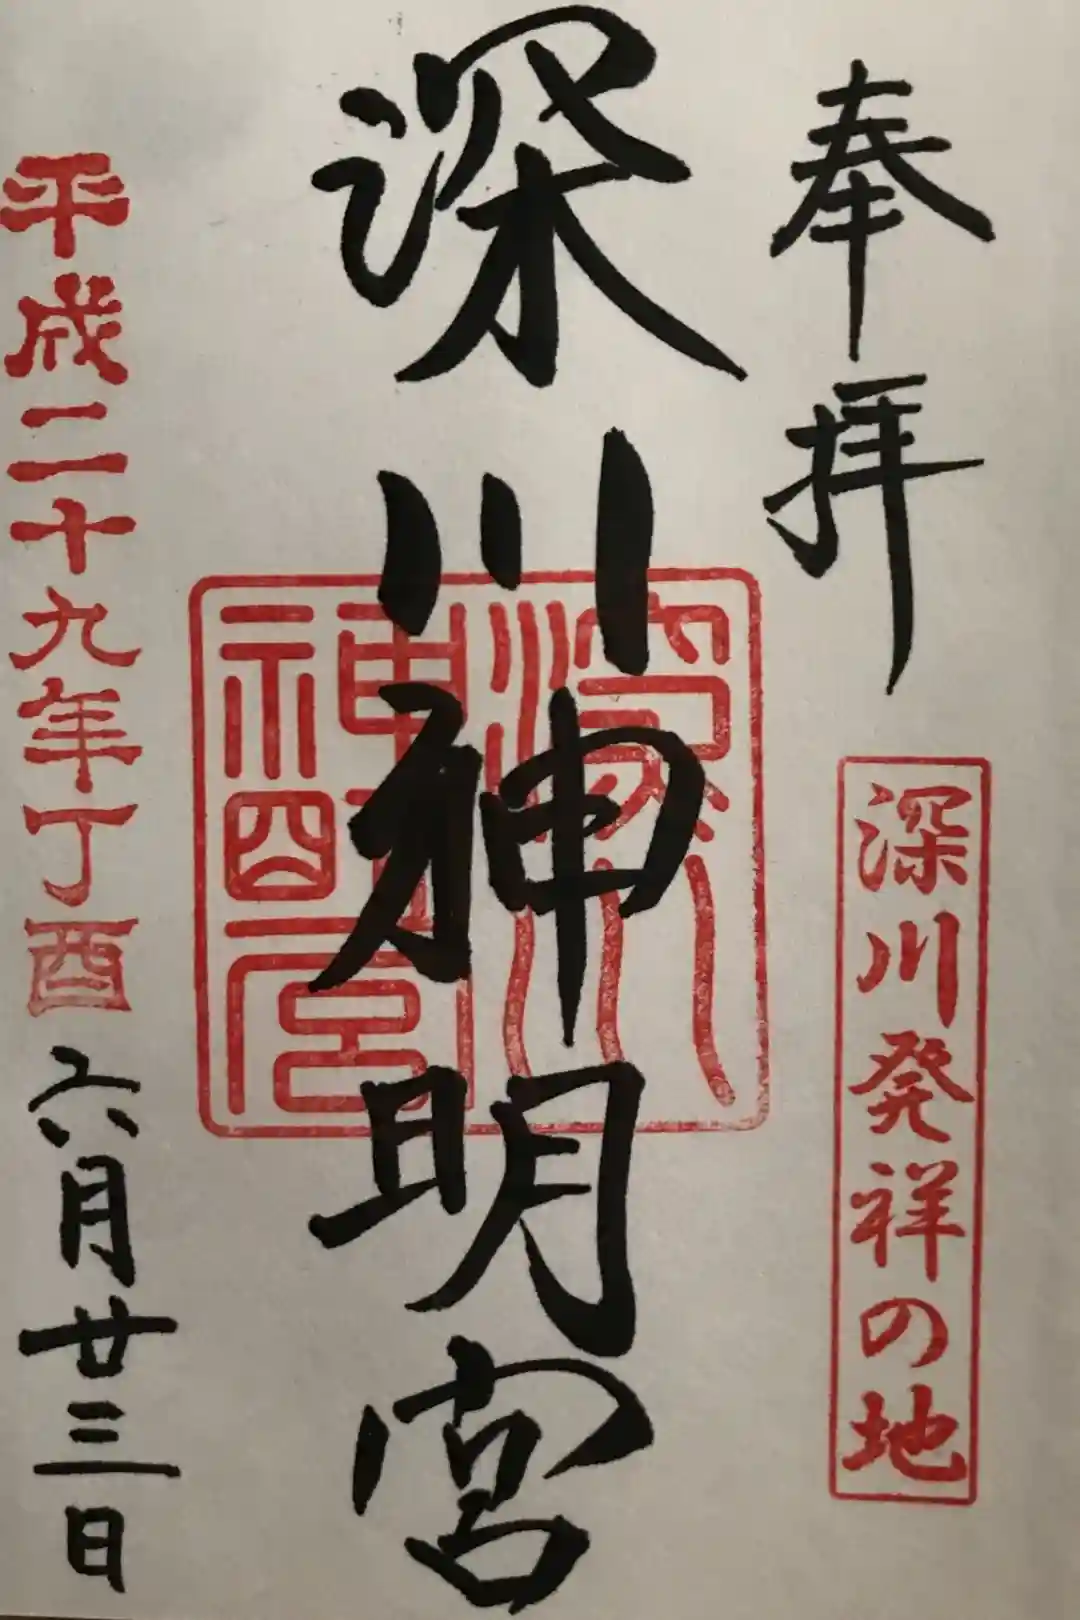 奉拝
深川発祥の地
深川神明宮
深川
神明宮
平成二十九年丁酉六月廿三日